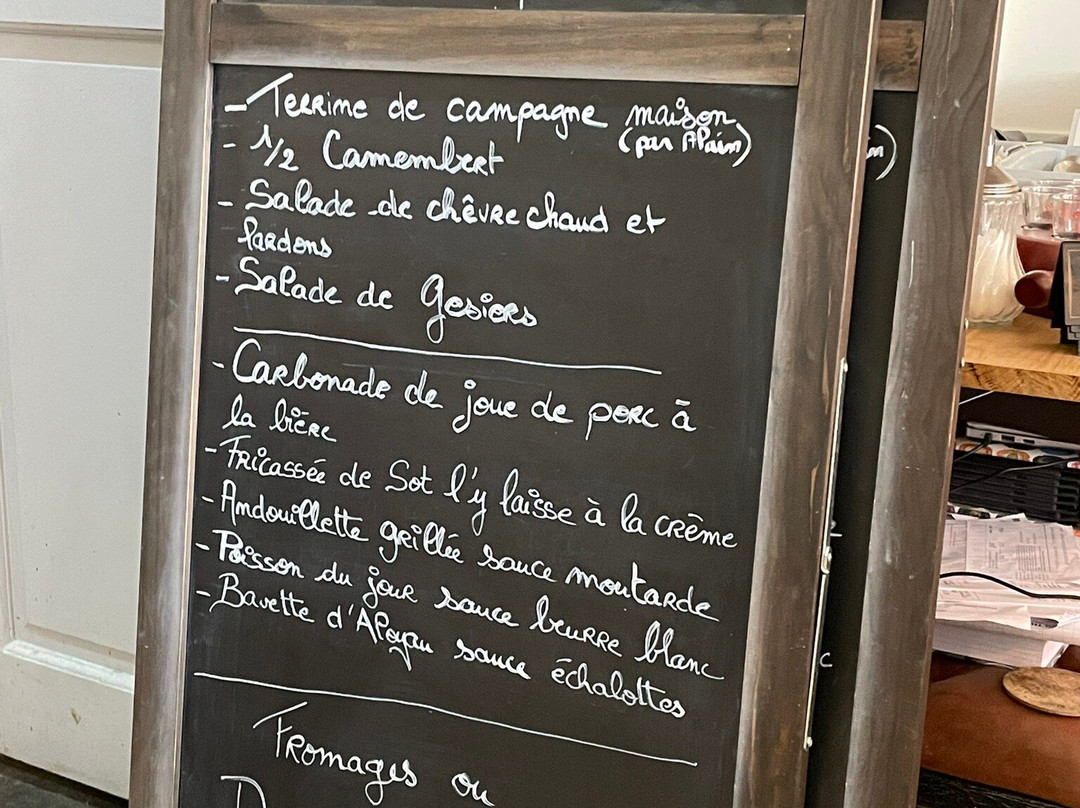 - Terrine de campagne maison
(par Alain)
- 1/2 Camembert
- Salade de chêvre chaud et
lardons
- Salade de gesiers
- Carbonade de joue de porc à
la bière
- Fricassée de Sot l'y laisse à la crème
- Andouillette grillée sauce moutarde
- Poisson du jour sauce beurre blanc
- Bavette d'Aloyau sauce échalottes
Fromages ou